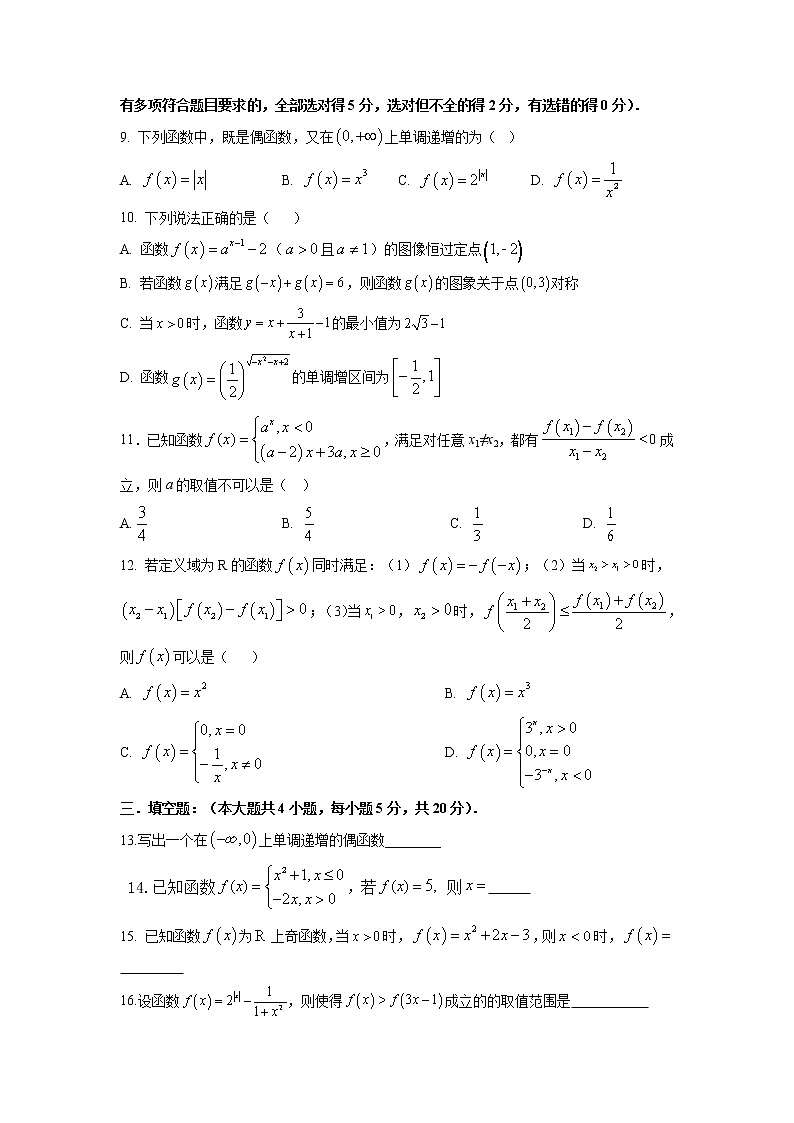 有多项符合题目要求的，全部选对得 5 分，选对但不全的得 2 分，有选错的得 0 分）.
9. 下列函数中，既是偶函数，又在(0,+∞)上单调递增的为（ ）
A. f(x)=|x| B. f(x)=x³ C. f(x)=2^|x| D. f(x)=1/x²
10. 下列说法正确的是（ ）
A. 函数f(x)=a^(x−1)−2（a>0且a≠1）的图像恒过定点(1,-2)
B. 若函数g(x)满足g(−x)+g(x)=6，则函数g(x)的图象关于点(0,3)对称
C. 当x>0时，函数y=x+3/(x+1)−1的最小值为2√3−1
D. 函数g(x)=(1/2)^√(−x²−x+2)的单调增区间为[−1/2,1]
11.已知函数f(x)={a^x,x<0; (a−2)x+3a,x≥0，满足对任意 x₁≠x₂，都有(f(x₁)−f(x₂))/(x₁−x₂)<0成
立，则a的取值不可以是（ ）
A. 3/4 B. 5/4 C. 1/3 D. 1/6
12. 若定义域为 R 的函数f(x)同时满足：（1）f(x)=−f(−x)；（2）当x₂>x₁>0时，
(x₂−x₁)[f(x₂)−f(x₁)]>0；（3)当x₁>0，x₂>0时，f((x₁+x₂)/2)≤(f(x₁)+f(x₂))/2，
则f(x)可以是（ ）
A. f(x)=x² B. f(x)=x³
C. f(x)={0,x=0; −1/x,x≠0 D. f(x)={3^x,x>0; 0,x=0; −3^(−x),x<0
三．填空题：（本大题共 4 小题，每小题 5 分，共 20 分）.
13.写出一个在(−∞,0)上单调递增的偶函数________
14.已知函数f(x)={x²+1,x≤0; −2x,x>0，若f(x)=5, 则x=______
15. 已知函数f(x)为 R 上奇函数,当x>0时，f(x)=x²+2x−3,则x<0时，f(x)=
_________
16.设函数f(x)=2^|x|−1/(1+x²)，则使得f(x)>f(3x−1)成立的的取值范围是___________